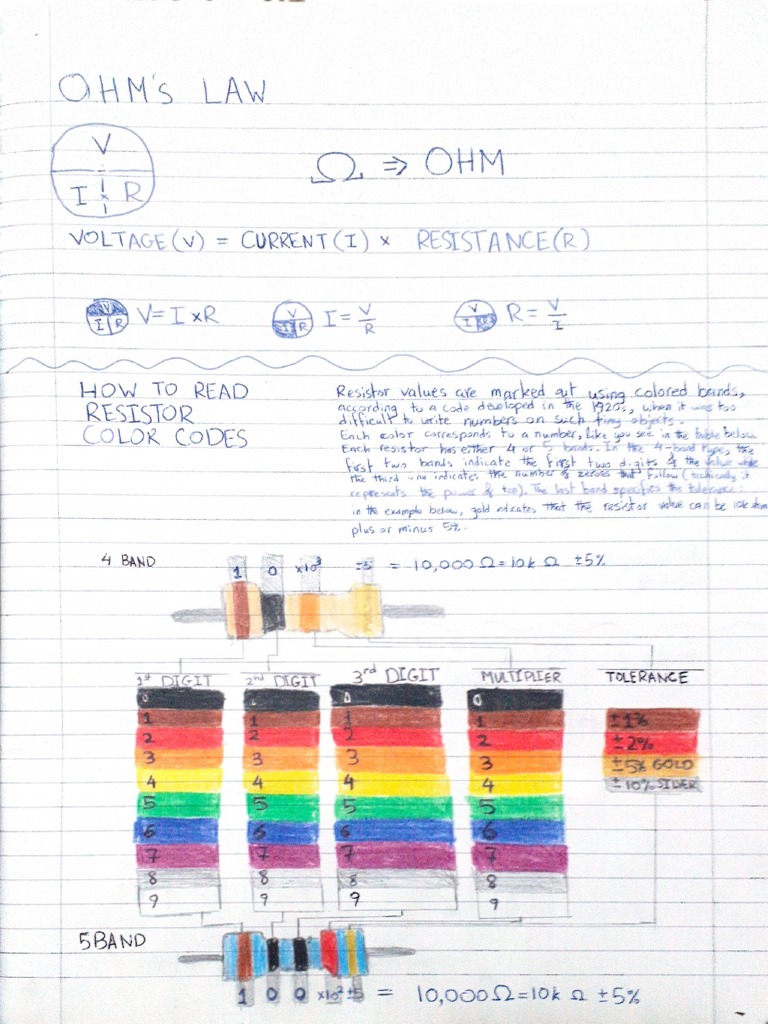 OHM's LAW
V
I × R
Ω ⇒ OHM
VOLTAGE(V) = CURRENT(I) × RESISTANCE(R)
V I R V = I × R
V I R I = V/R
V I R R = V/I
HOW TO READ
RESISTOR
COLOR CODES
Resistor values are marked out using colored bands,
according to a code developed in the 1920s, when it was too
difficult to write numbers on such tiny objects.
Each color corresponds to a number, like you see in the table below.
Each resistor has either 4 or 5 bands. In the 4-band type, the
first two bands indicate the first two digits of the value while
the third one indicates the number of zeros that follow (technically it
represents the power of ten). The last band specifies the tolerance:
in the example below, gold indicates that the resistor value can be 10k ohm
plus or minus 5%.
4 BAND
1 0 ×10³ ±5 = 10,000 Ω = 10k Ω ±5%
1st DIGIT 2nd DIGIT 3rd DIGIT MULTIPLIER TOLERANCE
0 0 0 0
1 1 1 1 ±1%
2 2 2 2 ±2%
3 3 3 3 ±5% GOLD
4 4 4 4 ±10% SILVER
5 5 5 5
6 6 6 6
7 7 7 7
8 8 8 8
9 9 9 9
5 BAND
1 0 0 ×10² ±5 = 10,000 Ω = 10k Ω ±5%